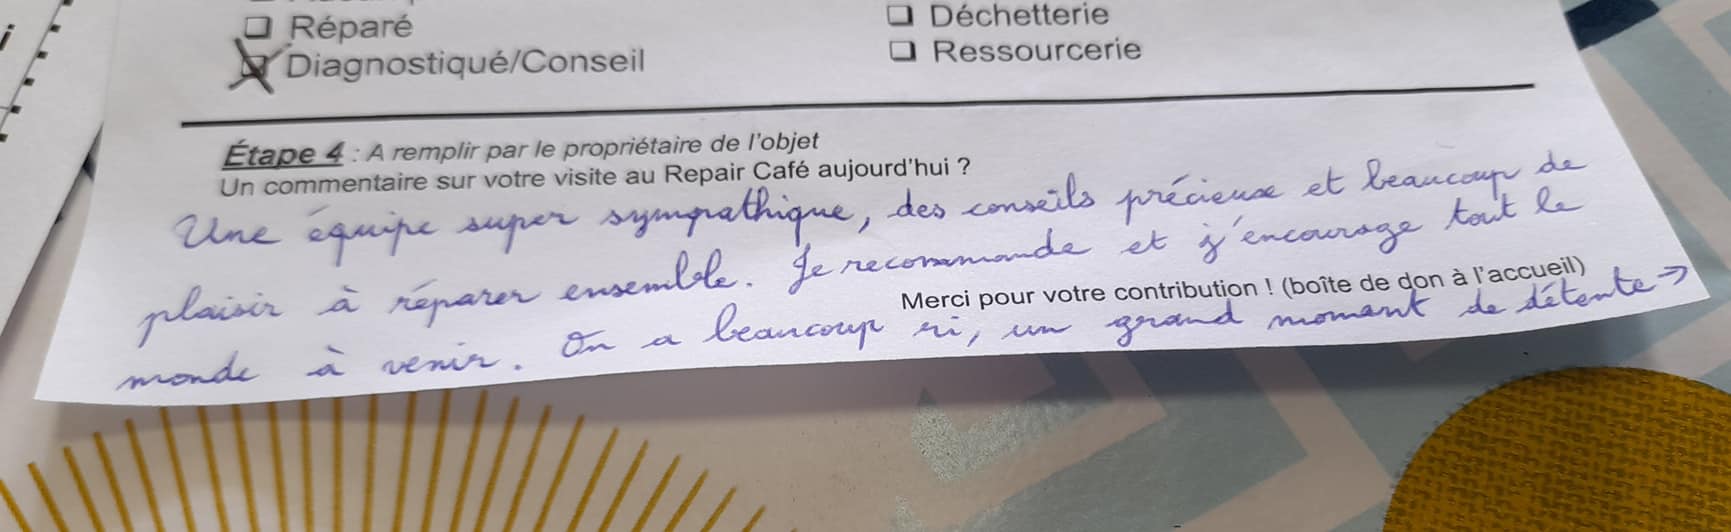 ☐ Réparé
☒ Diagnostiqué/Conseil
☐ Déchetterie
☐ Ressourcerie
Étape 4 : A remplir par le propriétaire de l'objet
Un commentaire sur votre visite au Repair Café aujourd'hui ?
Une équipe super sympathique, des conseils précieux et beaucoup de
plaisir à réparer ensemble. Je recommande et j'encourage tout le
Merci pour votre contribution ! (boîte de don à l'accueil)
monde à venir. On a beaucoup ri, un grand moment de détente →